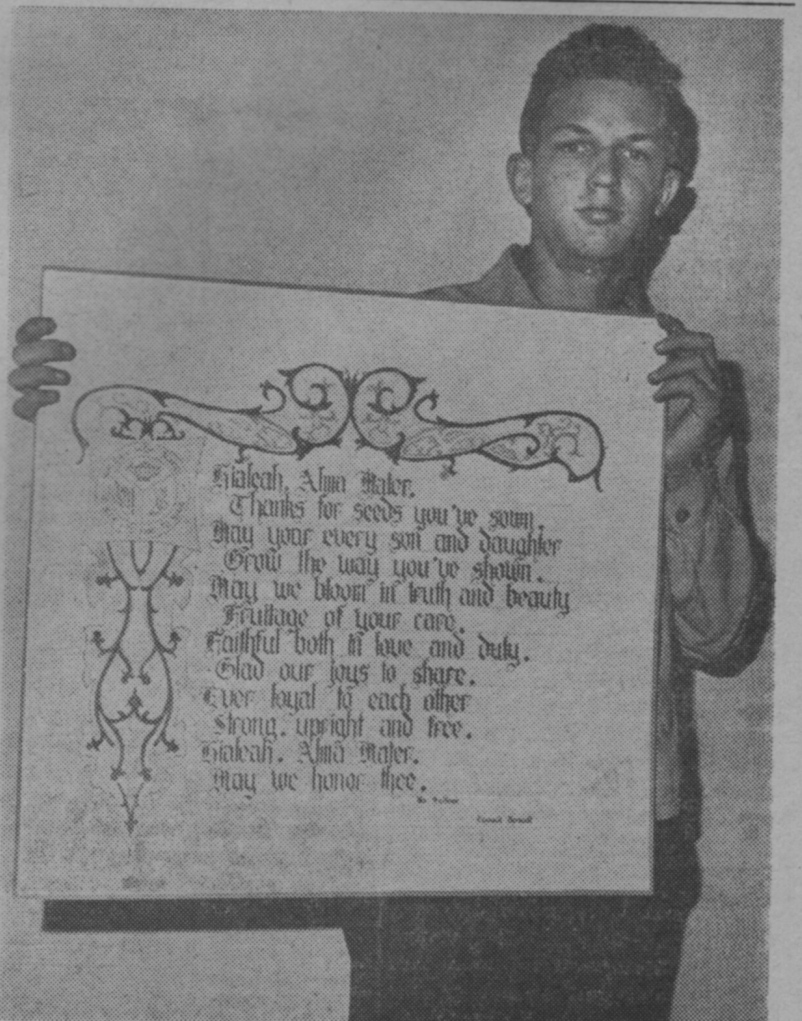 Hialeah, Alma Mater,
Thanks for seeds you've sown.
May your every son and daughter
Grow the way you've shown.
May we bloom in truth and beauty
Fruitage of your care.
Faithful both in love and duty.
Glad our joys to share.
Ever loyal to each other
Strong, upright and free.
Hialeah, Alma Mater,
May we honor thee.